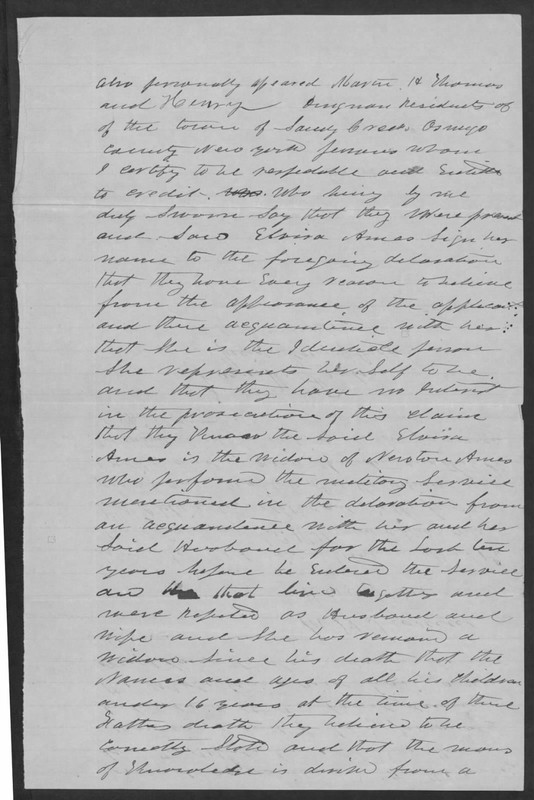 also personally apeared Martin H Thomas
and Henry residents of
of the town of Sandy Creek Oswego
County New York persons whom
I certify to be respectable and Entitled
to credit. who being by me
duly Sworn Say that they were present
and Saw Elvira Ames Sign her
name to the foregoing declaration
that they have Every reason to believe
from the appearance of the applicant
and there acquaintence with her
that She is the Identicle person
She represents herself to be
and that they have no Interest
in the prosecution of this claim
that they Know the Said Elvira
Ames is the Widow of Ames
who perform the military Service
mentioned in the declaration from
an acquandance with her and her
Said Husband for the Last ten
years before he Entered the Service
and that live together and
were reputed as Husband and
Wife and She has remand a
Widow Since his death that the
Names and ages of all his children
under 16 years at the time of there
Father death they believe to be
correctly State and that the means
of Knowledge is from a